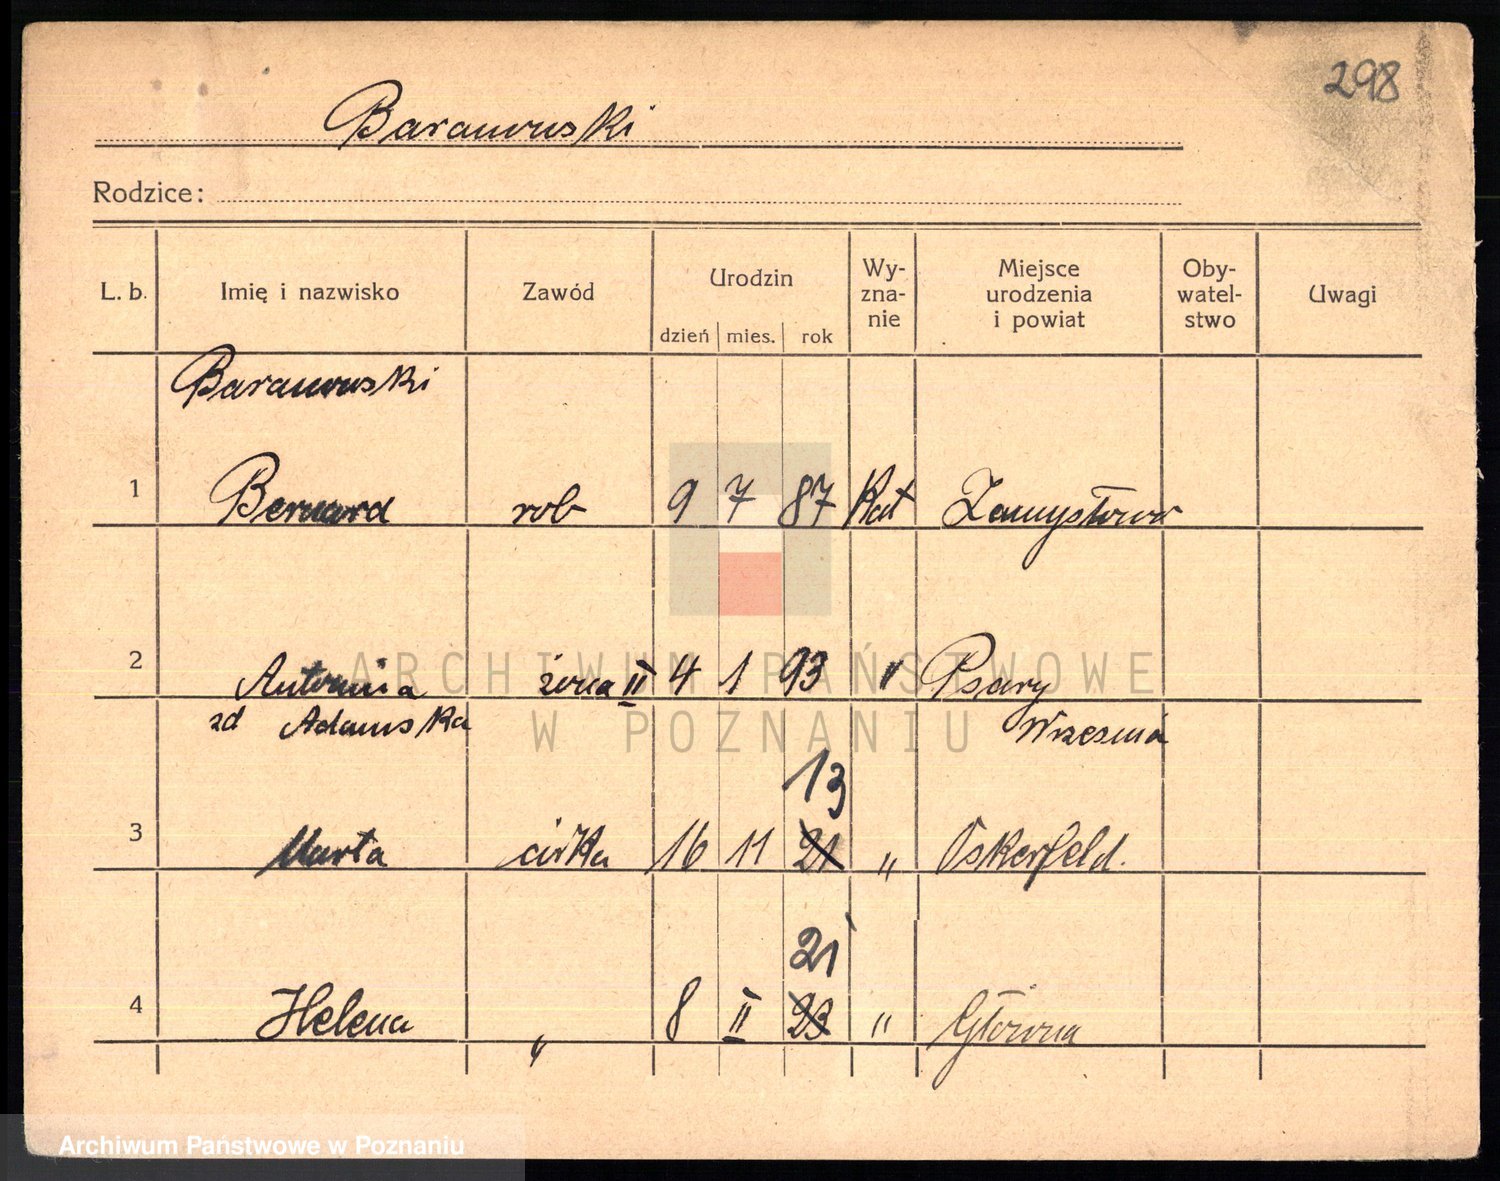 298
Baranowski
Rodzice:
L. b. Imię i nazwisko Zawód Urodzin dzień mies. rok Wy-zna-nie Miejsce urodzenia i powiat Oby-watel-stwo Uwagi
Baranowski
1 Bernard rob 9 7 87 Kat Zamysłowo
2 Antonina żona II 4 1 93 " Psary
zd Adamska Września
13
3 Marta córka 16 11 21 " Oskerfeld.
21
4 Helena " 8 II 23 " Główna
ARCHIWUM PAŃSTWOWE
W POZNANIU
Archiwum Państwowe w Poznaniu